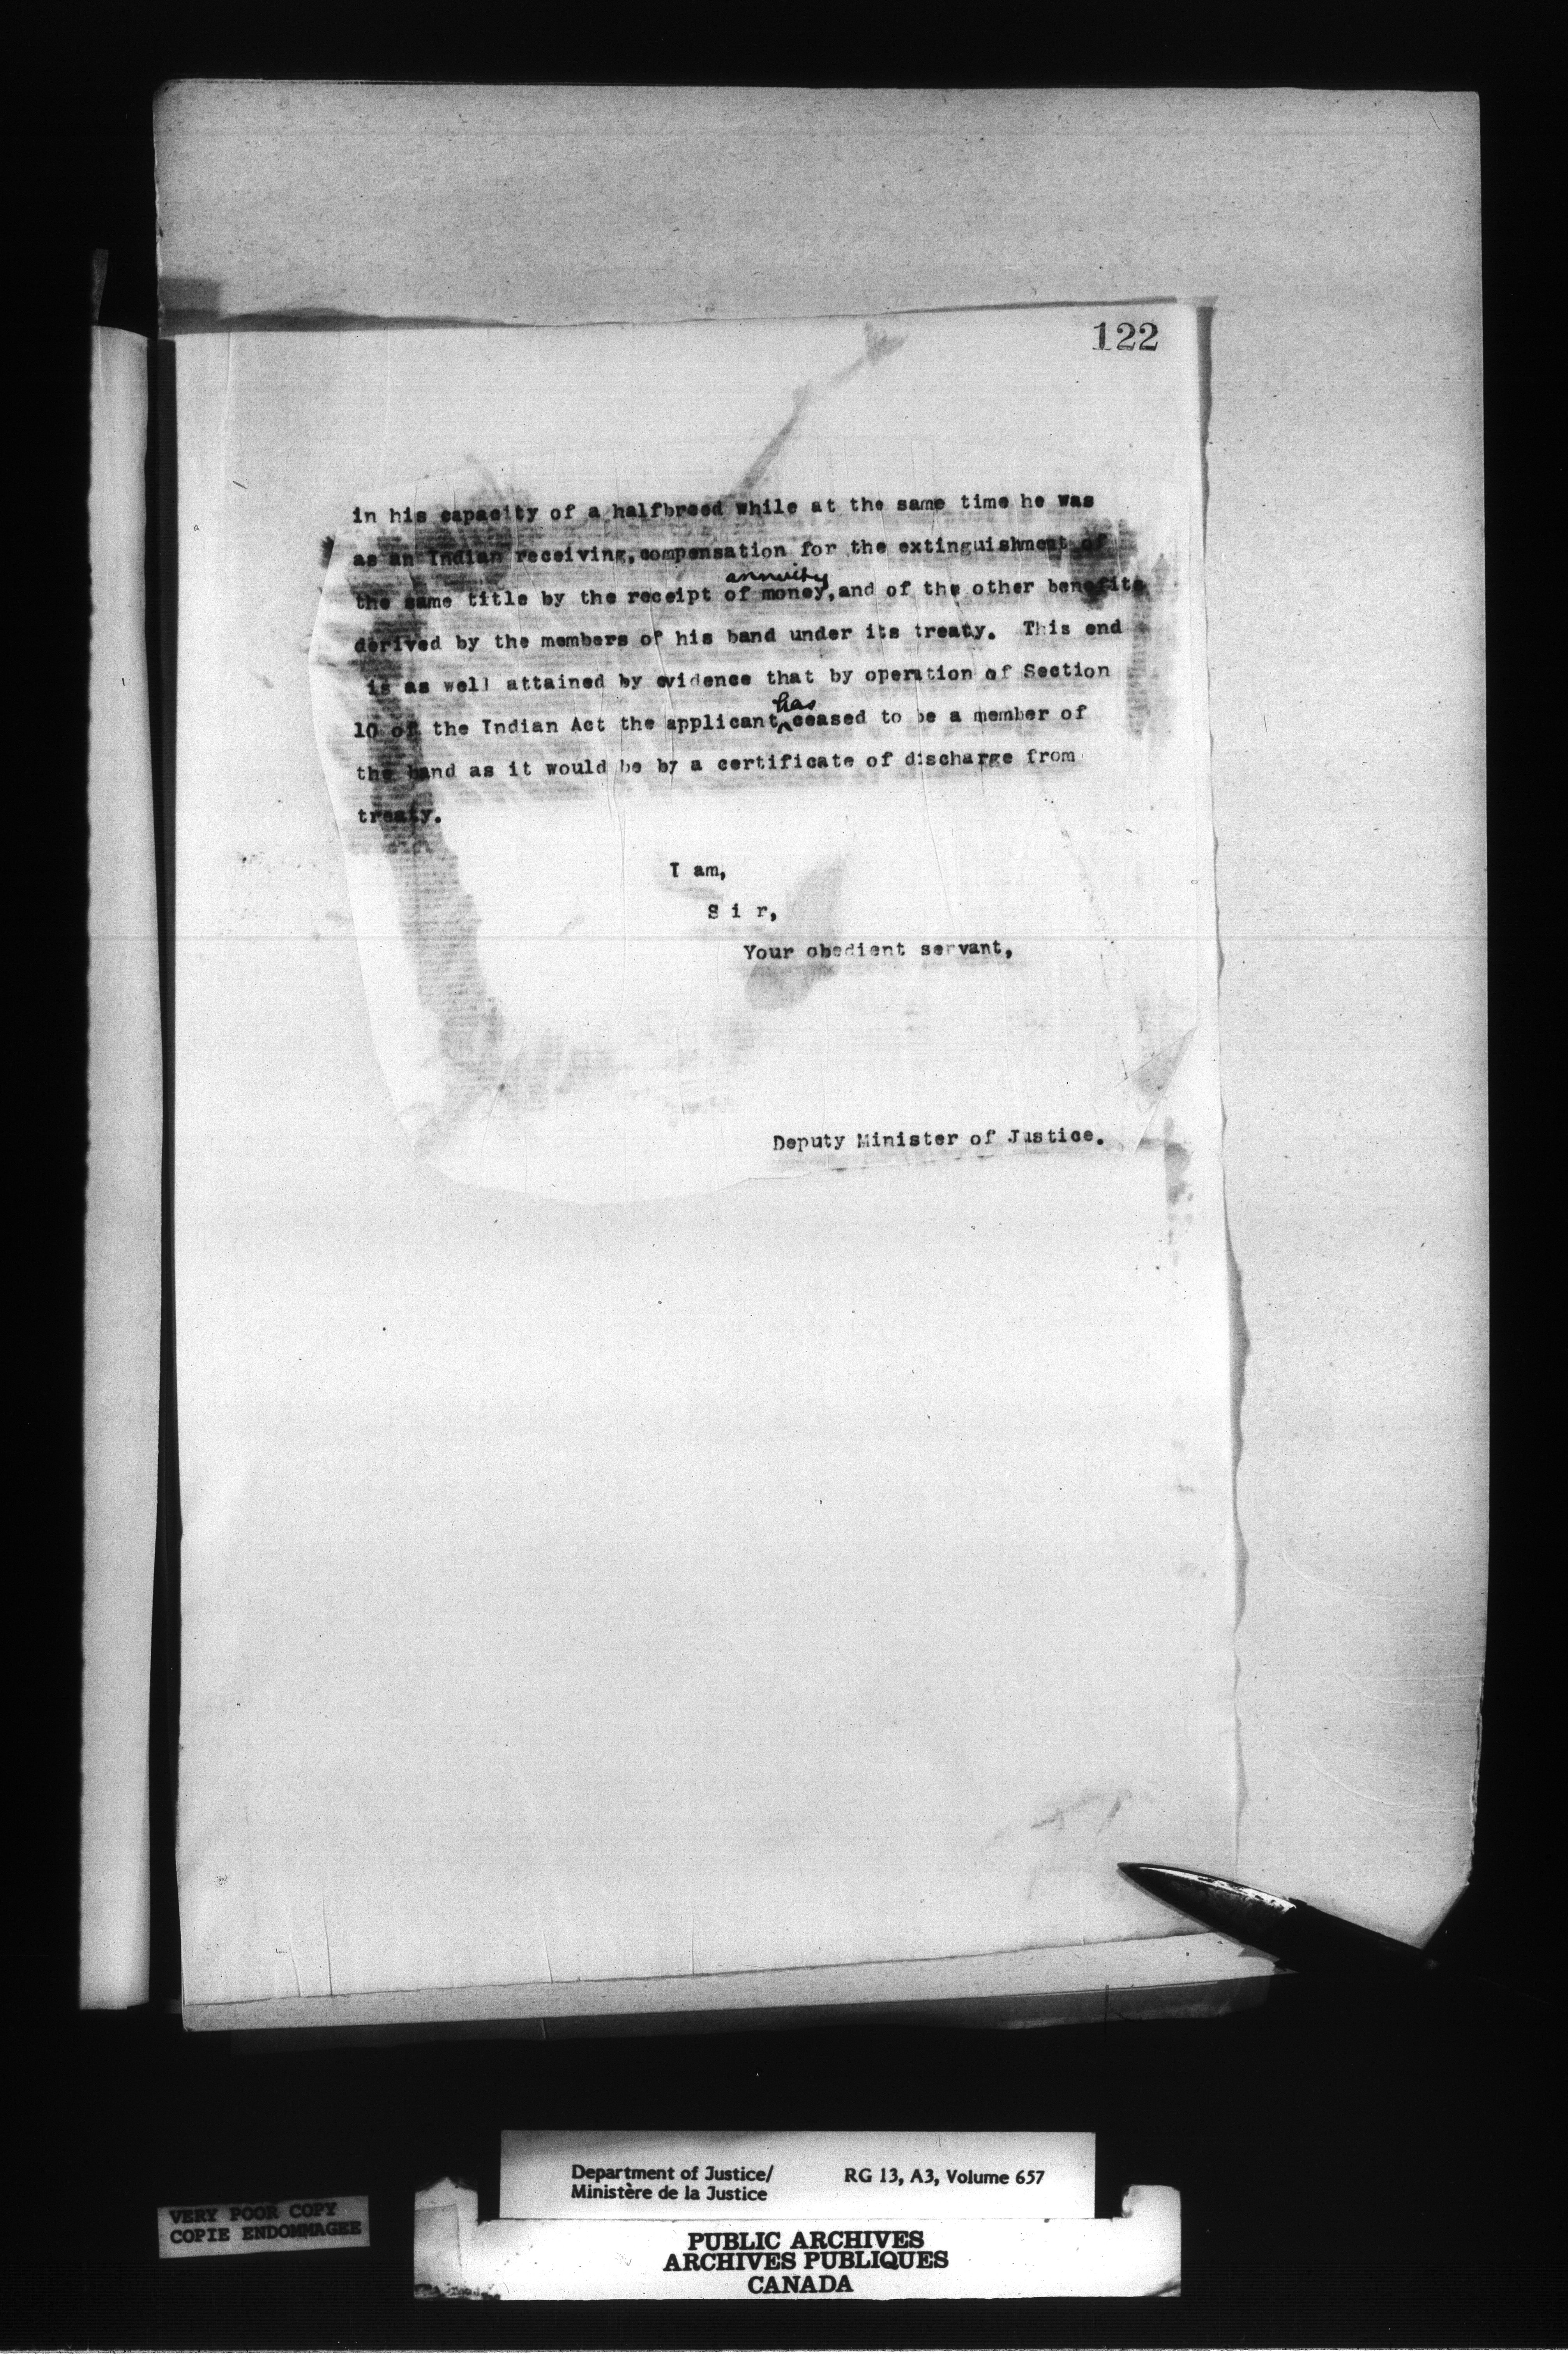 122
in his capacity of a halfbreed while at the same time he was
as an Indian receiving, compensation for the extinguishment of
annuity
the same title by the receipt of money, and of the other benefits
derived by the members of his band under its treaty. This end
is as well attained by evidence that by operation of Section
has
10 of the Indian Act the applicant ^ ceased to be a member of
the band as it would be by a certificate of discharge from
treaty.
I am,
S i r,
Your obedient servant,
Deputy Minister of Justice.
Department of Justice/ RG 13, A3, Volume 657
Ministère de la Justice
VERY POOR COPY
COPIE ENDOMMAGEE
PUBLIC ARCHIVES
ARCHIVES PUBLIQUES
CANADA